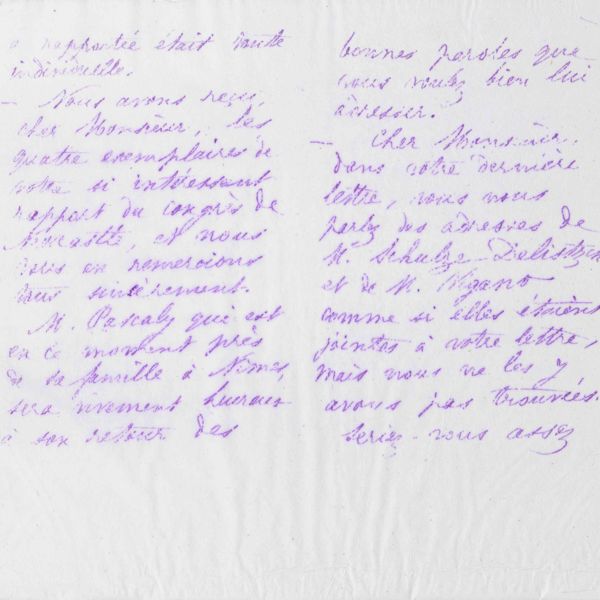 a rapportée était toute
individuelle.
— Nous avons reçu,
cher Monsieur, les
quatre exemplaires de
votre si intéressant
rapport du congrès de
et nous
vous en remercions
tous sincèrement.
M. Pascaly qui est
en ce moment près
de sa famille à Nîmes,
sera vivement heureux
à son retour des
bonnes paroles que
vous voulez bien lui
adresser.
— Cher Monsieur,
dans votre dernière
lettre, vous nous
parlez des adresses de
M. Schulze-Delistzch
et de M. Vigano
comme si elles étaient
jointes à votre lettre,
mais nous ne les y
avons pas trouvées.
Seriez-vous assez